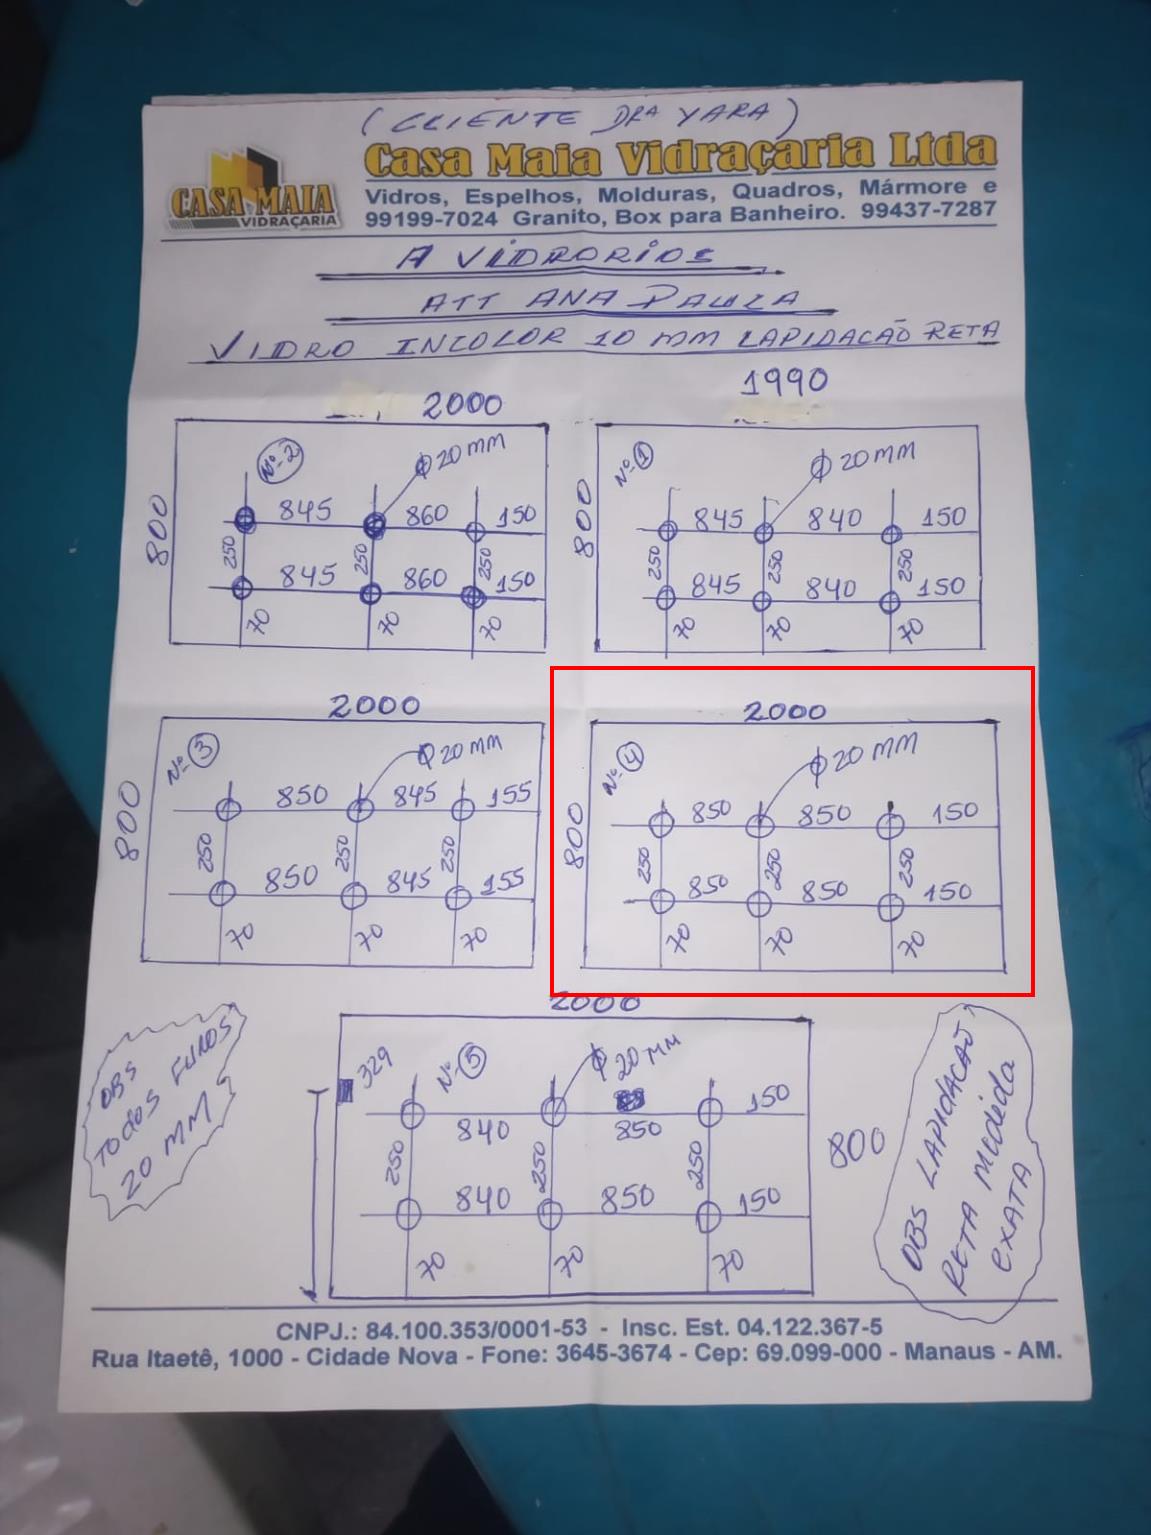 ( CLIENTE DRA YARA )
CASA MAIA
VIDRAÇARIA
Casa Maia Vidraçaria Ltda
Vidros, Espelhos, Molduras, Quadros, Mármore e
99199-7024 Granito, Box para Banheiro. 99437-7287
A VIDRORIOS
ATT ANA PAULA
VIDRO INCOLOR 10 MM LAPIDACÃO RETA
2000
Nº 2
Φ 20 MM
800
845 860 150
250 250 250
845 860 150
70 70 70
1990
Nº 1
Φ 20 MM
800
845 840 150
250 250 250
845 840 150
70 70 70
2000
Nº 3
Φ 20 MM
800
850 845 155
250 250 250
850 845 155
70 70 70
2000
Nº 4
Φ 20 MM
800
850 850 150
250 250 250
850 850 150
70 70 70
2000
329
Nº 5
Φ 20 MM
800
840 850 150
250 250 250
840 850 150
70 70 70
OBS
TODOS FUROS
20 MM
OBS LAPIDACAO
RETA MEDIDA
EXATA
CNPJ.: 84.100.353/0001-53 - Insc. Est. 04.122.367-5
Rua Itaetê, 1000 - Cidade Nova - Fone: 3645-3674 - Cep: 69.099-000 - Manaus - AM.